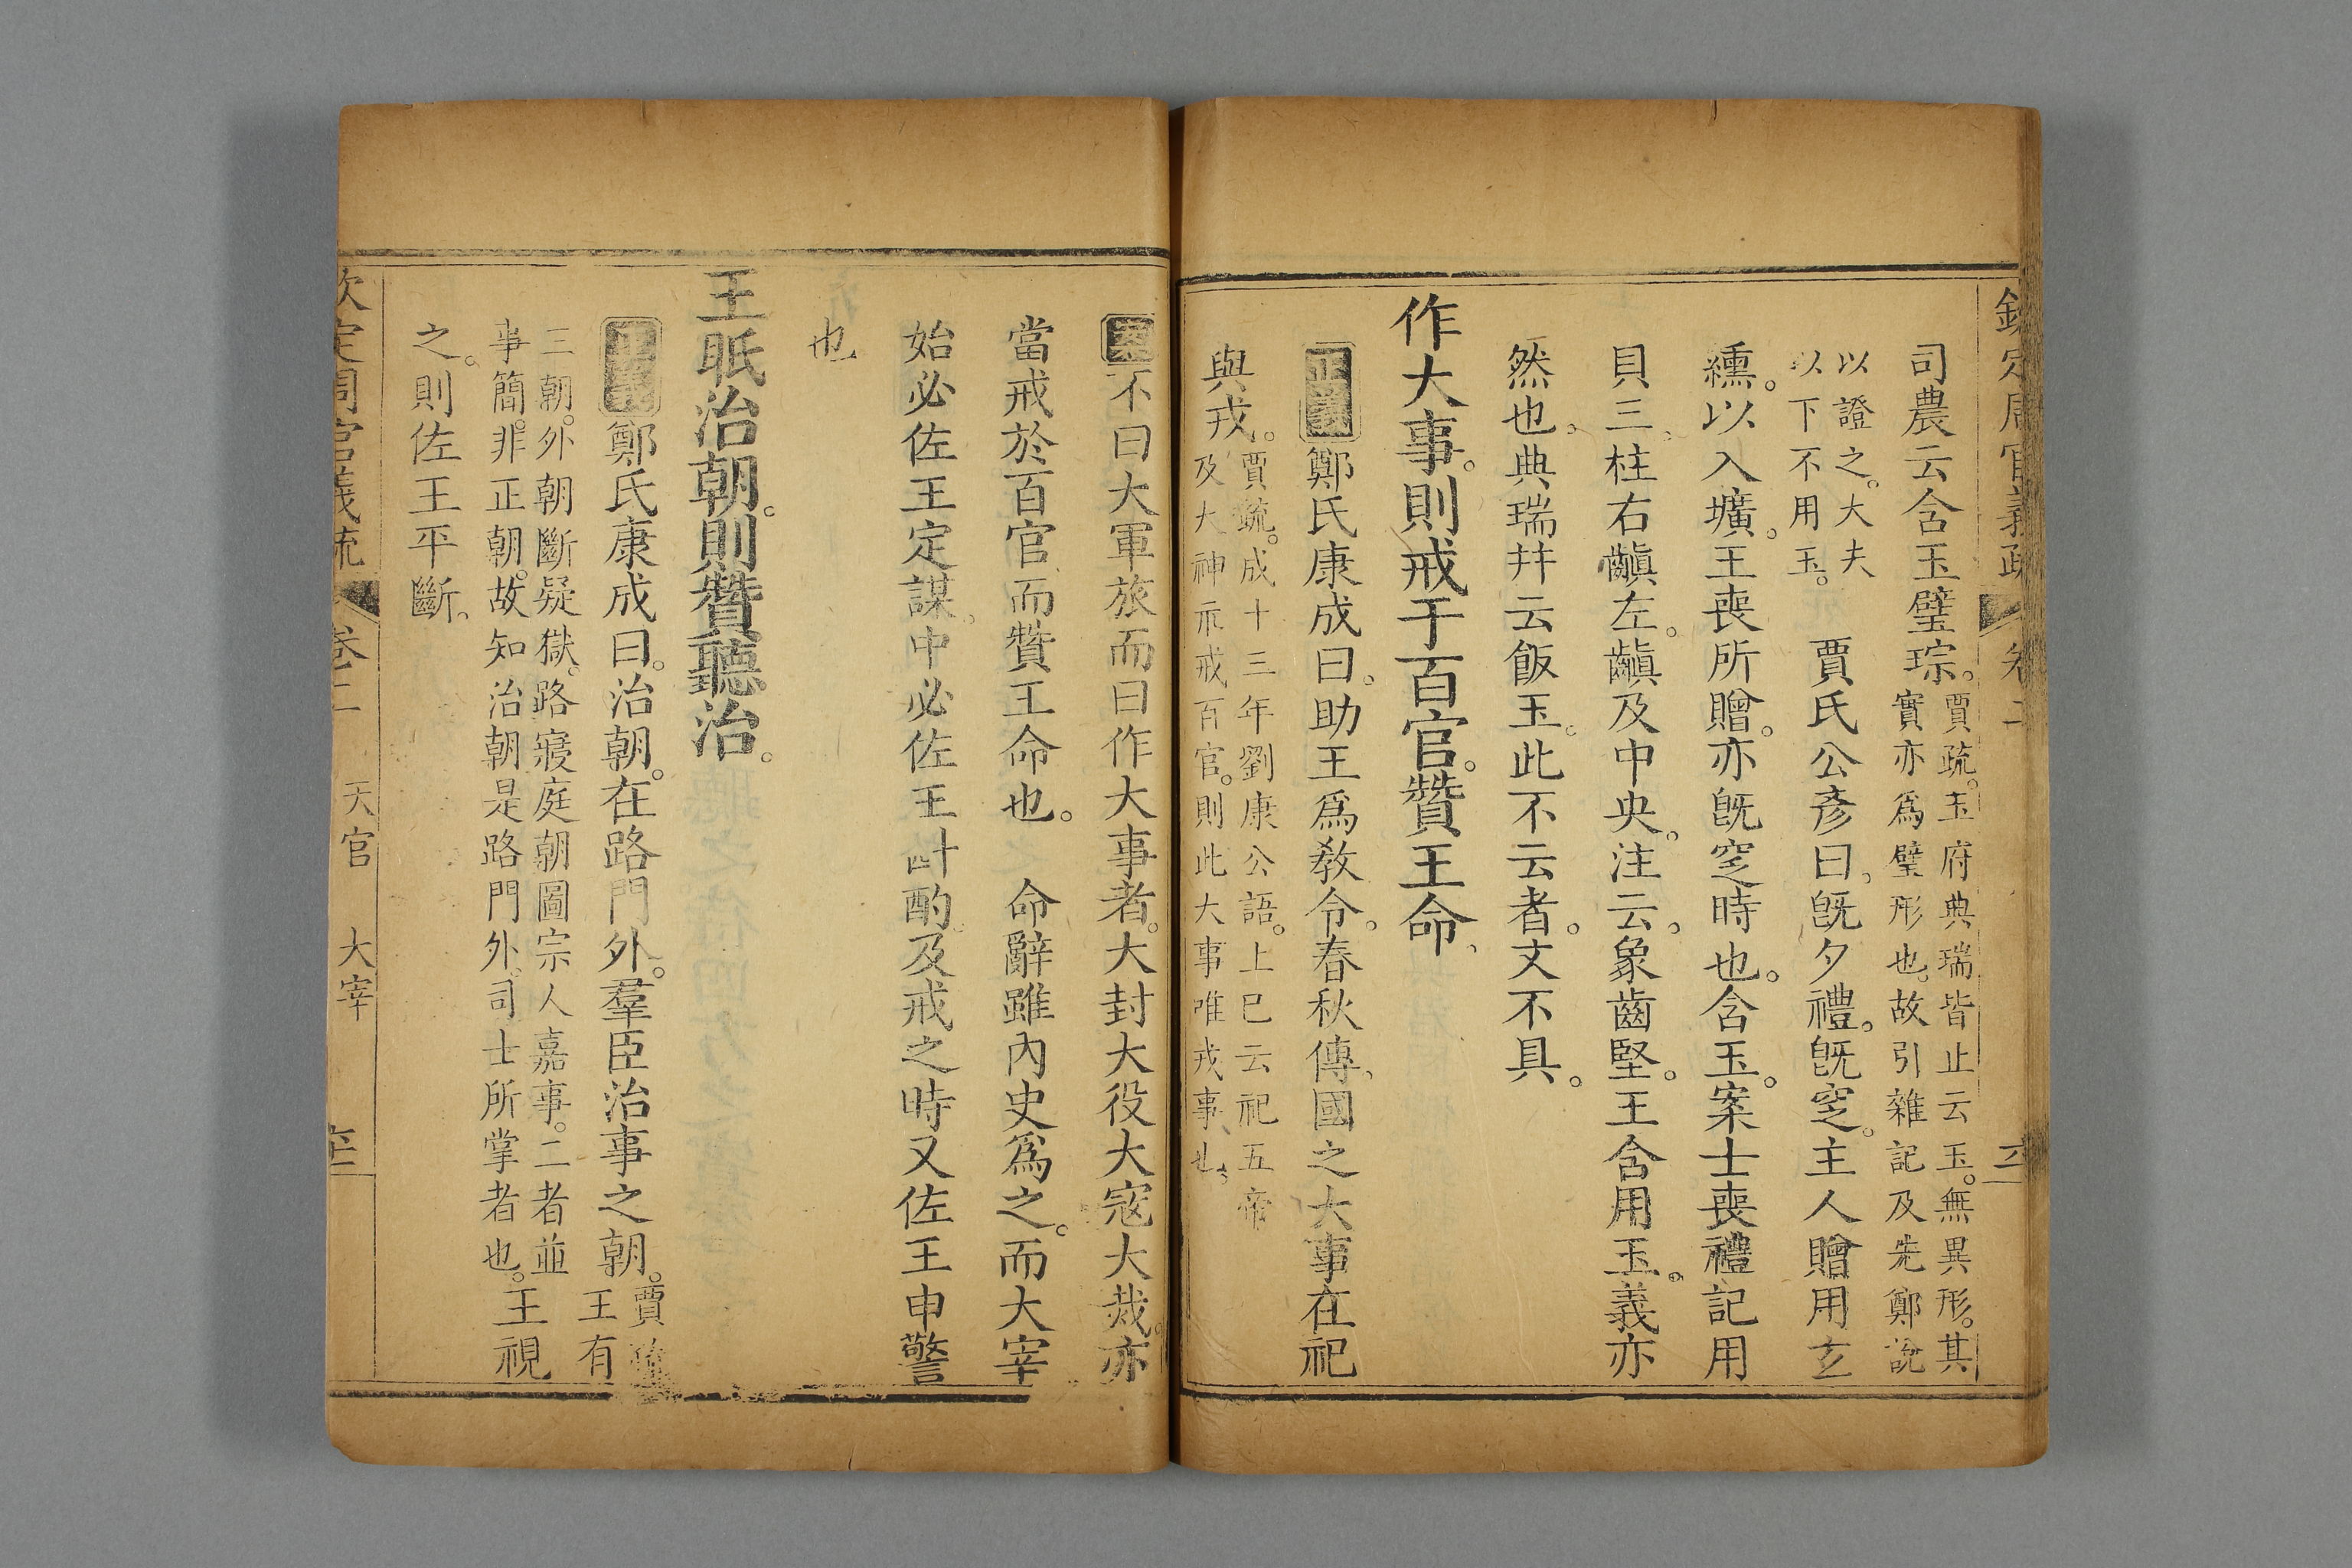 欽定周官義疏 卷二
司農云含玉璧琮。賈疏。玉府典瑞皆止云玉。無異形。其
實亦爲璧形也。故引雜記及先鄭說
以證之。大夫
以下不用玉。
賈氏公彥曰、旣夕禮。旣窆。主人贈用玄
纁。以入壙。王喪所贈。亦旣窆時也。含玉。案士喪禮記用
貝三。柱右齻左。齻及中央。注云。象齒堅。王含用玉。義亦
然也。典瑞幷云飯玉。此不云者。文不具。
作大事。則戒于百官。贊王命、
正義鄭氏康成曰。助王爲敎令。春秋傳。國之大事在祀
與戎。賈疏。成十三年劉康公語。上已云祀五帝
及大神示戒百官。則此大事唯戎事也。
案不曰大軍旅而曰作大事者。大封大役大寇大烖。亦
當戒於百官而贊王命也。 命辭雖內史爲之。而大宰
始必佐王定謀。中必佐王斟酌。及戒之時又佐王申警
也
王眡治朝。則贊聽治。
正義鄭氏康成曰。治朝。在路門外。羣臣治事之朝。賈疏
王有
三朝。外朝斷疑獄。路寢庭朝圖宗人嘉事。二者並
事簡。非正朝。故知治朝是路門外。司士所掌者也。王視
之。則佐王平斷。
欽定周官義疏 卷二 天官 大宰